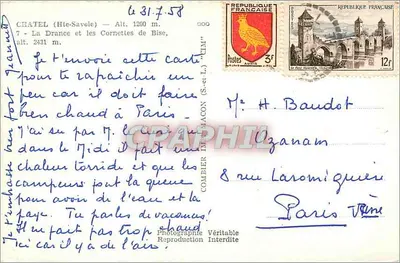 le 31.7.58
CHATEL (Hte-Savoie) — Alt. 1200 m.
7 - La Drance et les Cornettes de Bise,
alt. 2431 m.
Je t'envoie cette carte
pour te rafraîchir un
peu car il doit faire
bien chaud à Paris.
J'ai su par M. le
dans le Midi il fait une
chaleur torride et que les
campeurs font la queue
pour avoir de l'eau et la
paye. Tu parles de vacances!
Il ne fait pas trop chaud
ici car il y a de l'air.
Je t'embrasse bien fort Jeannette
COMBIER IMP. MACON (S.-et-L.) "CIM"
Photographie Véritable
Reproduction Interdite
REPUBLIQUE
FRANÇAISE
Postes
3F
REPUBLIQUE FRANÇAISE
12F
CPARAMA
Me H. Baudot
Ozanam
8 rue Laromiguière
Paris Vème